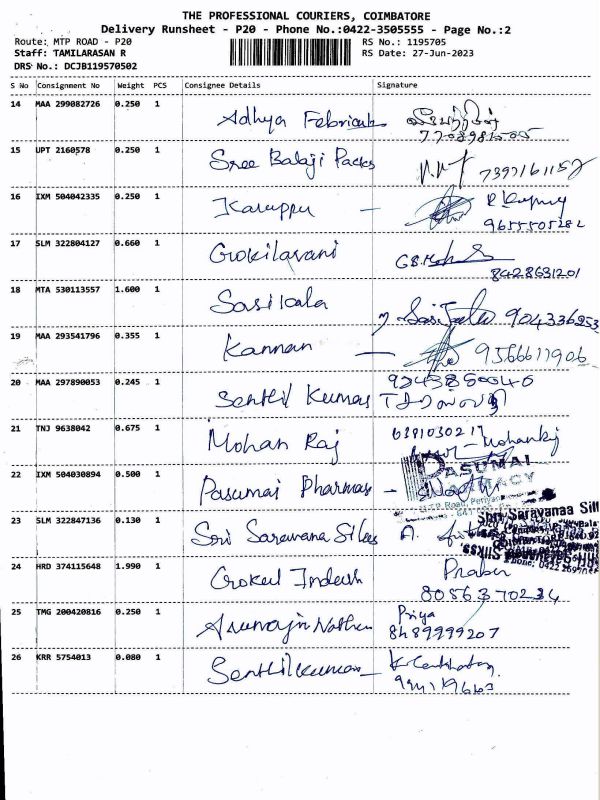 THE PROFESSIONAL COURIERS, COIMBATORE
Delivery Runsheet - P20 - Phone No.:0422-3505555 - Page No.:2
Route: MTP ROAD - P20 RS No.: 1195705
Staff: TAMILARASAN R RS Date: 27-Jun-2023
DRS No.: DCJB119570502
S No Consignment No Weight PCS Consignee Details Signature
14 MAA 299082726 0.250 1 Adhya
15 UPT 2160578 0.250 1 Sree Balaji Packs 7397161152
16 IXM 504042335 0.250 1 Karuppu —
9655505282
17 SLM 322804127 0.660 1 Gokilavani
8428631201
18 MTA 530113557 1.600 1 Sasikala 904336253
19 MAA 293541796 0.355 1 Kannan — 9566611906
20 MAA 297890053 0.245 1 Senthil Kumar
21 TNJ 9638042 0.675 1 Mohan Raj
22 IXM 504030894 0.500 1 Pasumai Pharmacy —
PASUMAI
PHARMACY
23 SLM 322847136 0.130 1 Sri Sarawana Silks A.
Shri Saravanaa Sil
24 HRD 374115648 1.990 1 Gokul Prabu
8056370234
25 TMG 200420816 0.250 1 Priya
8489999207
26 KRR 5754013 0.080 1 Senthilkumar —